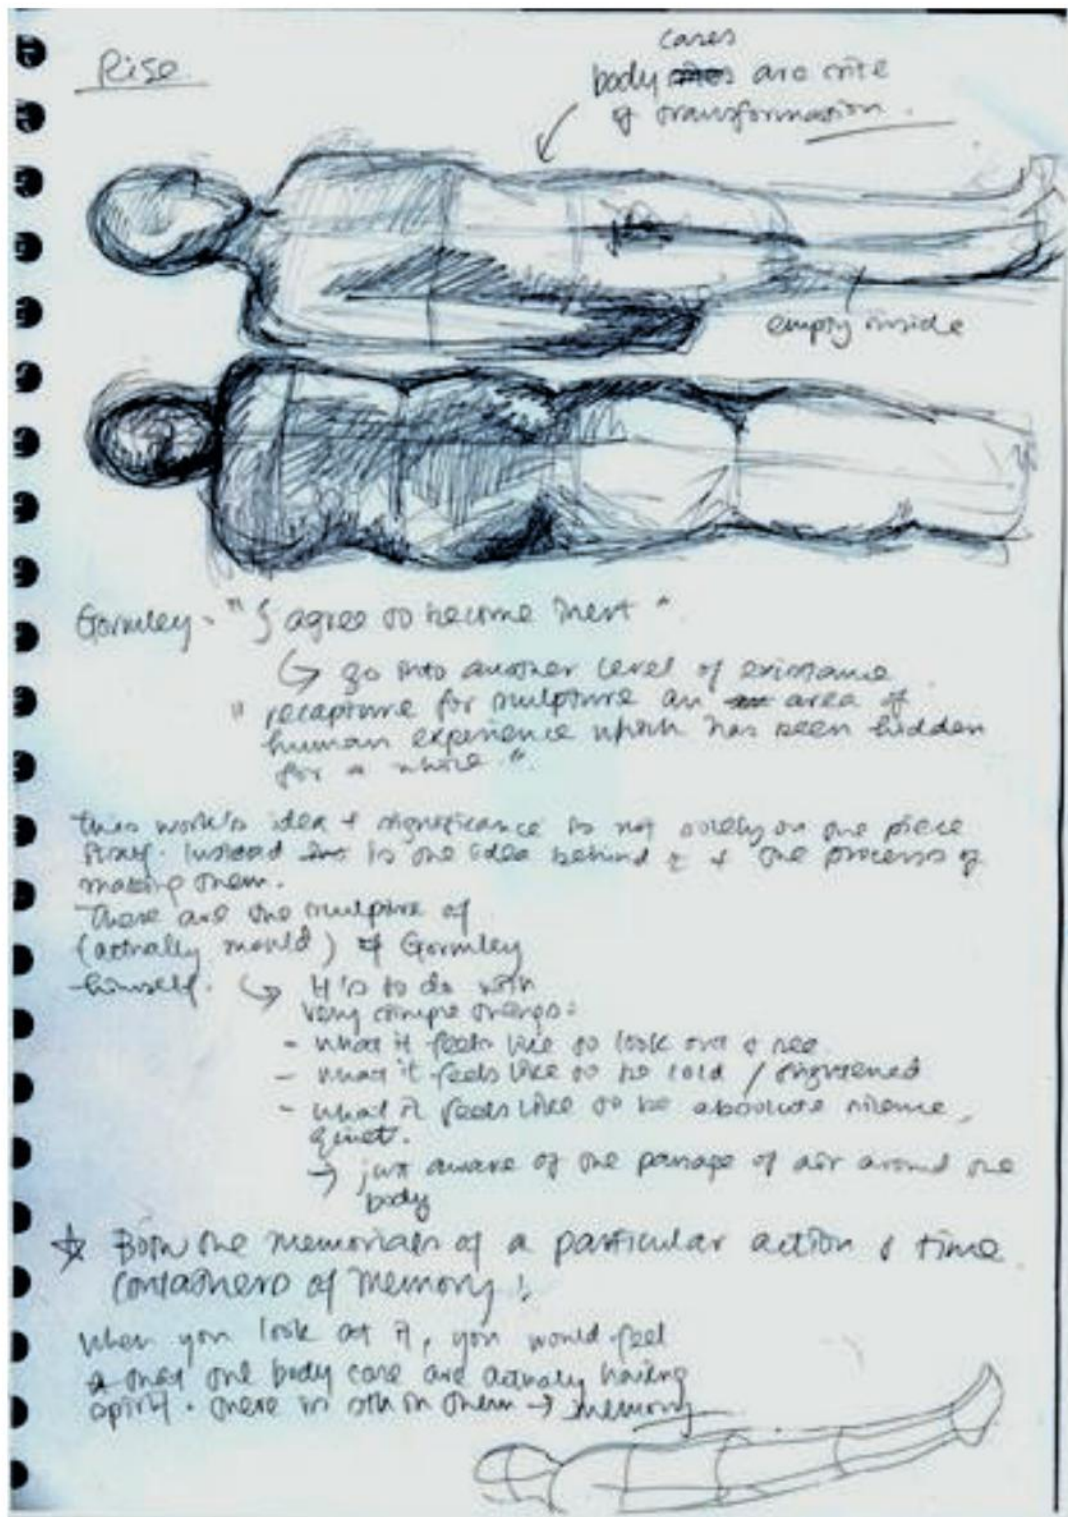 Rise
cases
body are site
of transformation.
empty inside
Gormley - "I agree to become inert"
↳ go into another level of existance
"recapture for sculpture an area of
human experience which has been hidden
for a while".
this work's idea + significance is not solely on the piece
itself. Instead is the idea behind it + the process of
making them.
These are the sculpture of
(actually mould) of Gormley
himself. ↳ It's to do with
very simple things:
- what it feels like to look out & see
- what it feels like to be cold / frightened
- what it feels like to be absolute silence,
quiet.
→ just aware of the passage of air around the
body
☆ Both the memorials of a particular action & time
containers of memory!
When you look at it, you would feel
that the body case are actually having
spirit. there is sth in them → memory